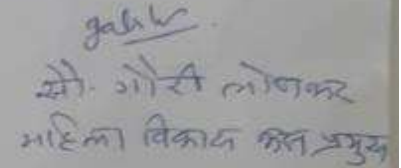 सौ. गौरी लोणकर
महिला विकास कक्ष प्रमुख